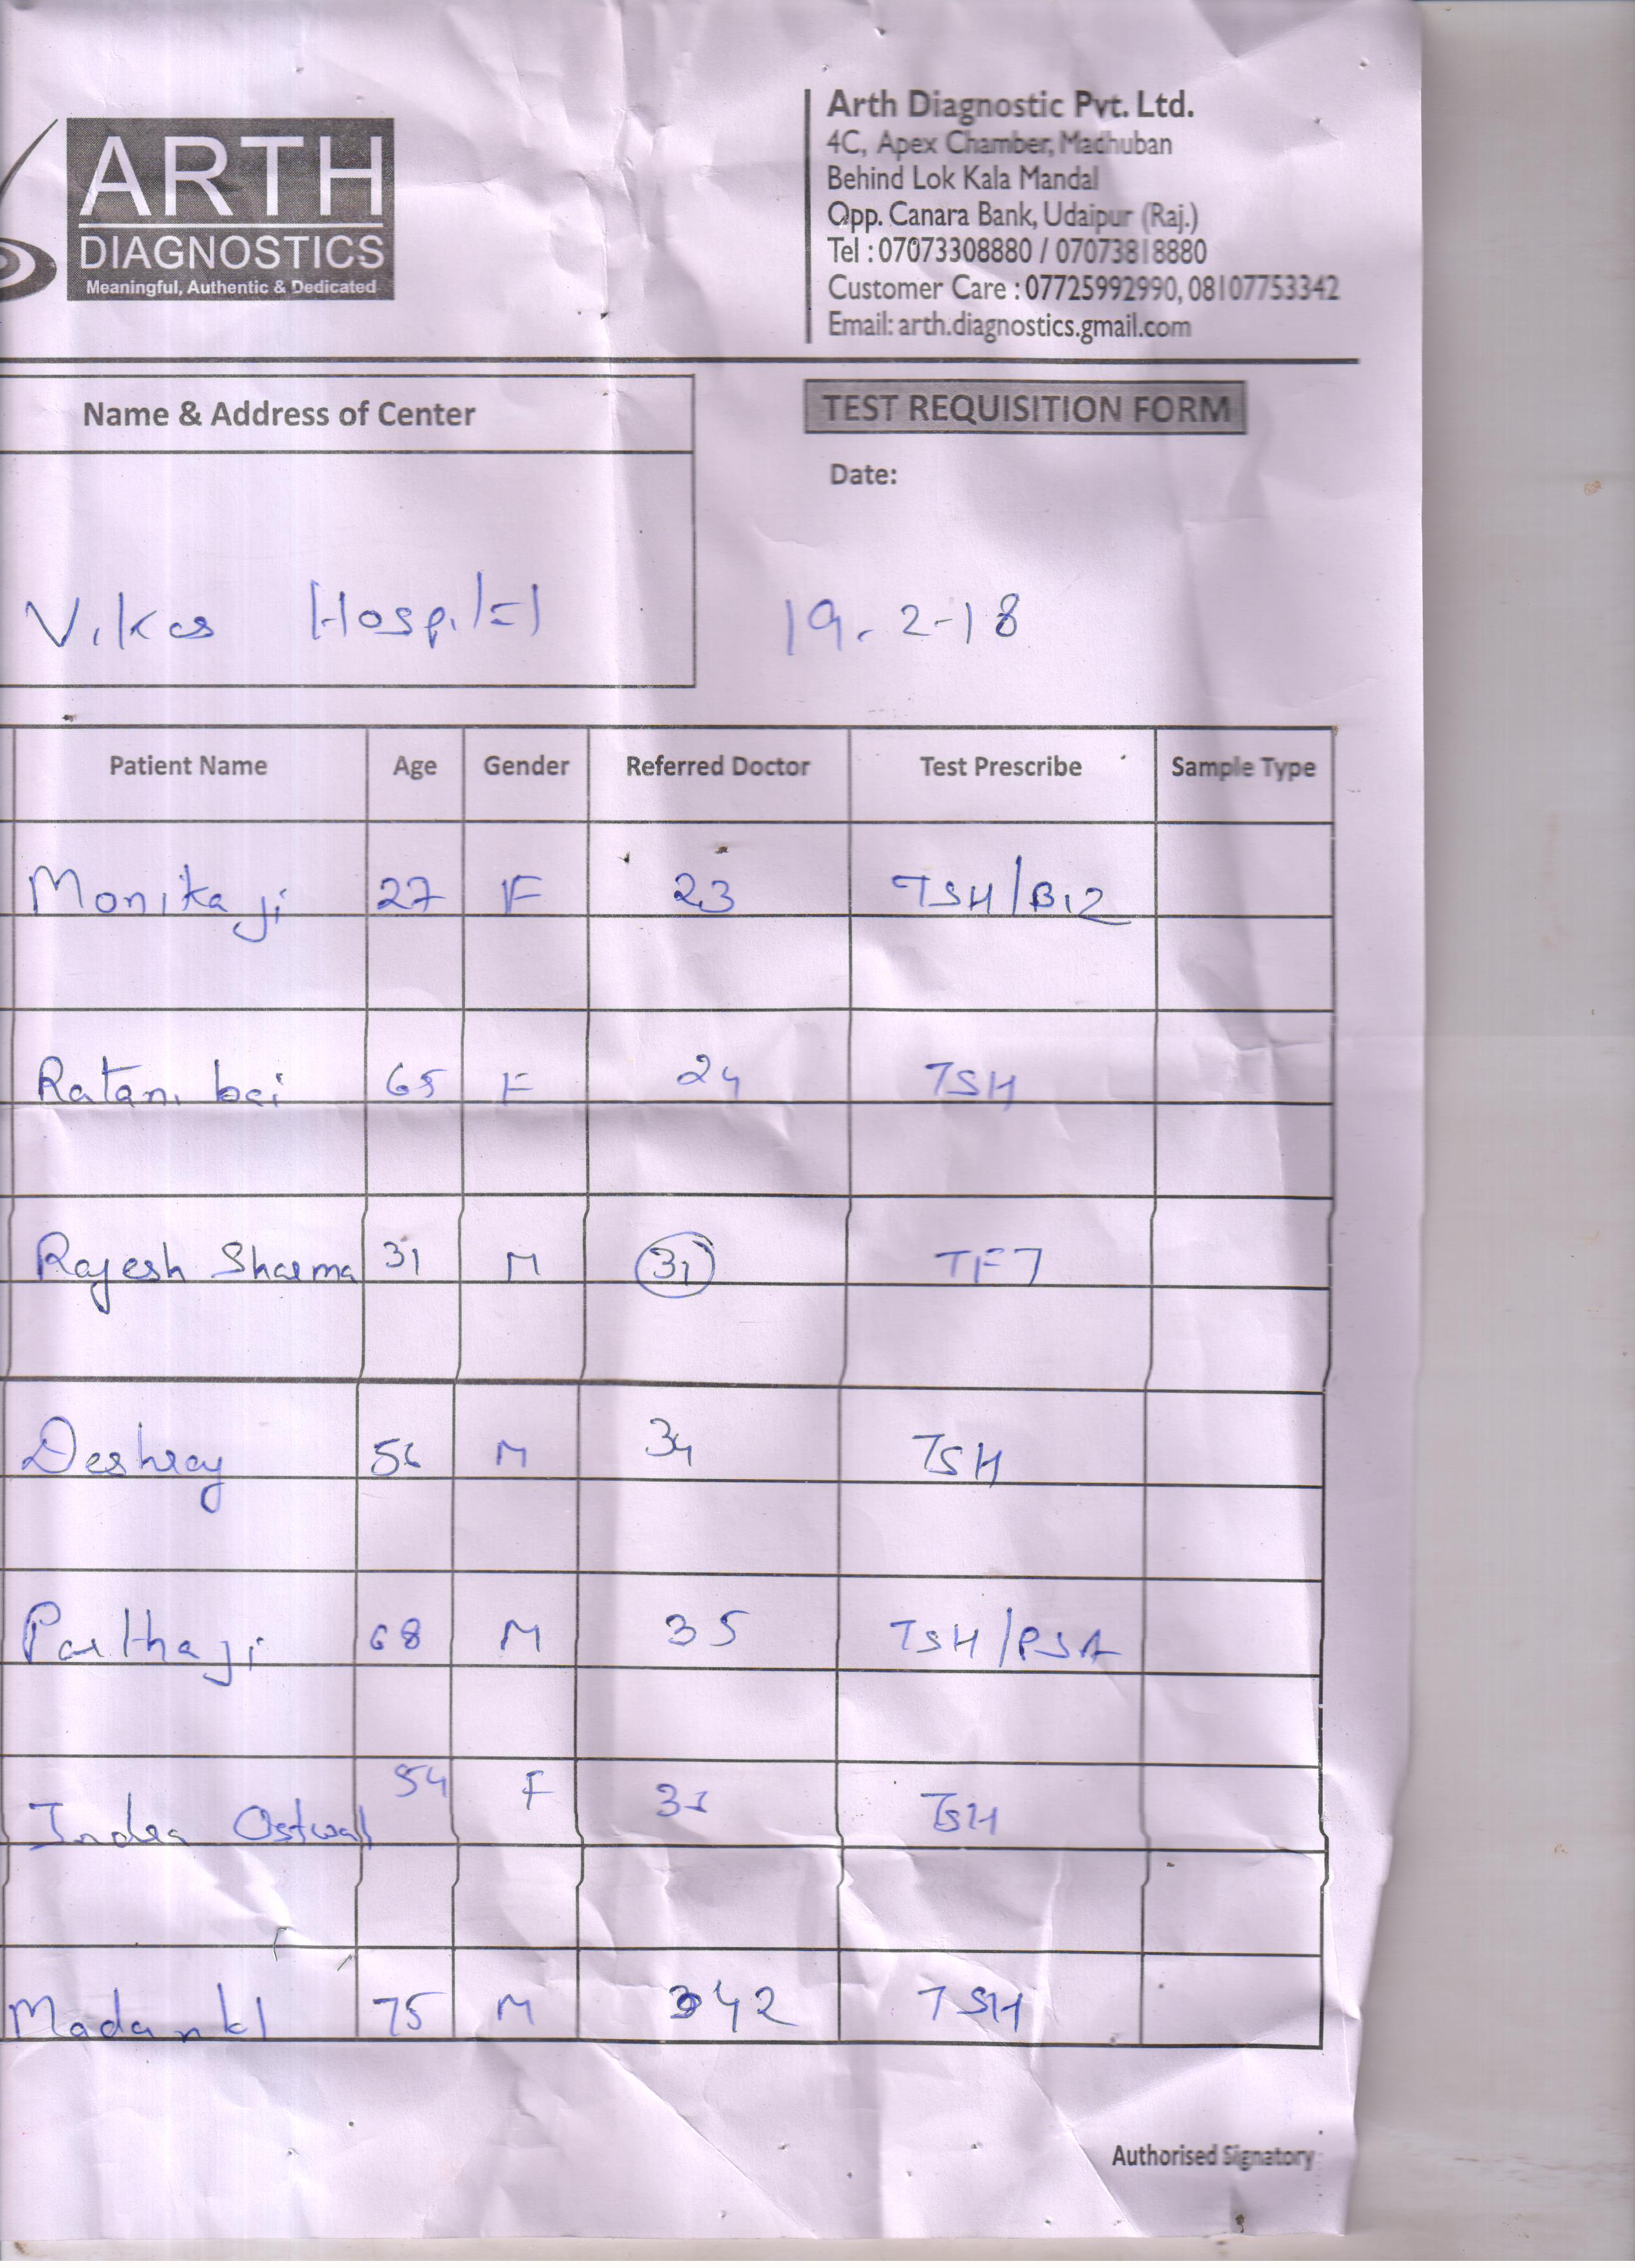 ARTH
DIAGNOSTICS
Meaningful, Authentic & Dedicated
Arth Diagnostic Pvt. Ltd.
4C, Apex Chamber, Madhuban
Behind Lok Kala Mandal
Opp. Canara Bank, Udaipur (Raj.)
Tel : 07073308880 / 07073818880
Customer Care : 07725992990, 08107753342
Email: arth.diagnostics.gmail.com
Name & Address of Center
TEST REQUISITION FORM
Date:
Vikas Hospital
19.2-18
Patient Name Age Gender Referred Doctor Test Prescribe Sample Type
Monika ji 27 F 23 TSH/B12
Ratan bai 65 F 24 TSH
Rajesh Sharma 31 M 31 TFT
Deshraj 56 M 34 TSH
Partha ji 68 M 35 TSH/PSA
Indra Ostwal 54 F TSH
75 M 42 TSH
Authorised Signatory